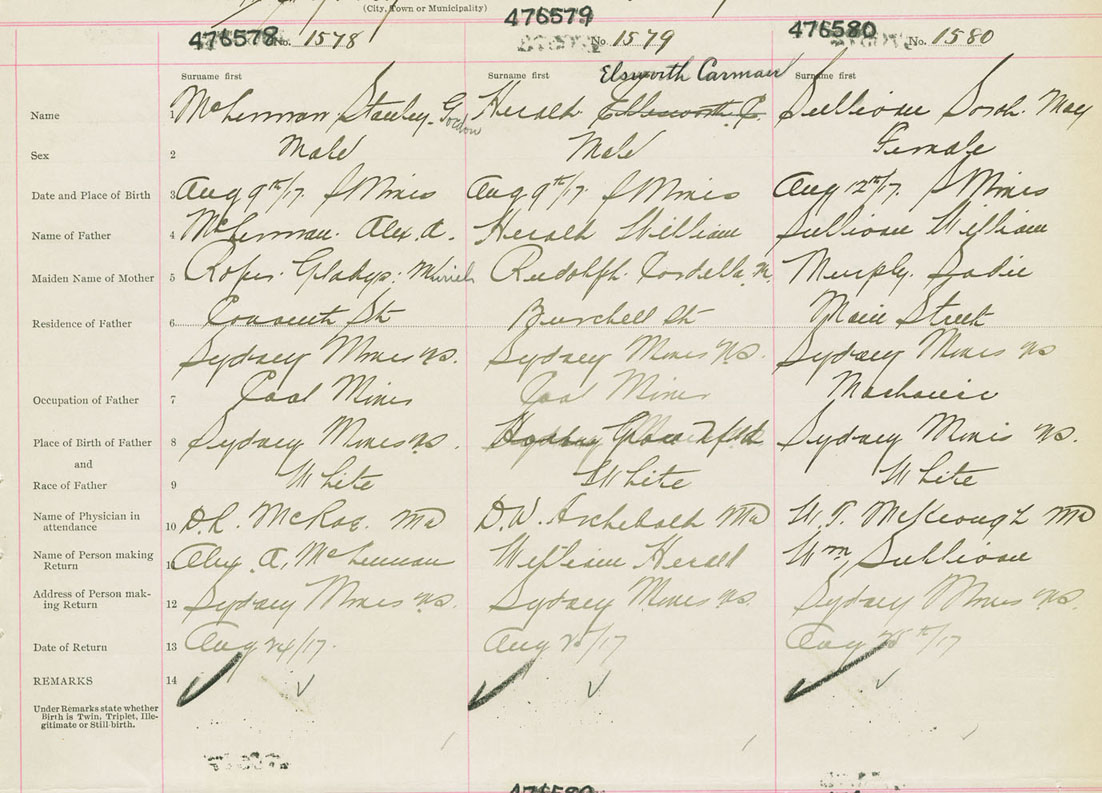 (City, Town or Municipality)
476578 No. 1578 476579 No. 1579 476580 No. 1580
Surname first Surname first Elsworth Carman Surname first
Name 1 McLennan Stanley Gordon Herald Ellsworth C. Sullivan Sarah May
Sex 2 Male Male Female
Date and Place of Birth 3 Aug 9th/17. S Mines Aug 9th/17. S Mines Aug 12th/17. S Mines
Name of Father 4 McLennan. Alex. A. Herald William Sullivan William
Maiden Name of Mother 5 Roper. Gladys. Muriel Rudolph. Cordella. M. Murphy. Sadie
Residence of Father 6 St. Burchell St. Main Street
Sydney Mines NS. Sydney Mines NS. Sydney Mines NS
Occupation of Father 7 Coal Miner Coal Miner Mechanic
Place of Birth of Father 8 Sydney Mines NS. Sydney Mines NS.
and
Race of Father 9 White White White
Name of Physician in
attendance 10 D.R. McRae. MD D.W. Archibald MD W.T. McKeough MD
Name of Person making
Return 11 Alex. A. McLennan William Herald Wm Sullivan
Address of Person mak-
ing Return 12 Sydney Mines NS. Sydney Mines NS. Sydney Mines NS.
Date of Return 13 Aug 24/17. Aug 25/17 Aug 25th/17
REMARKS 14
Under Remarks state whether
Birth is Twin, Triplet, Ille-
gitimate or Still-birth.